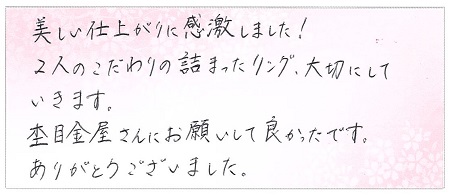 美しい仕上がりに感激しました!
2人のこだわりの詰まったリング、大切にして
いきます。
杢目金屋さんにお願いして良かったです。
ありがとうございました。